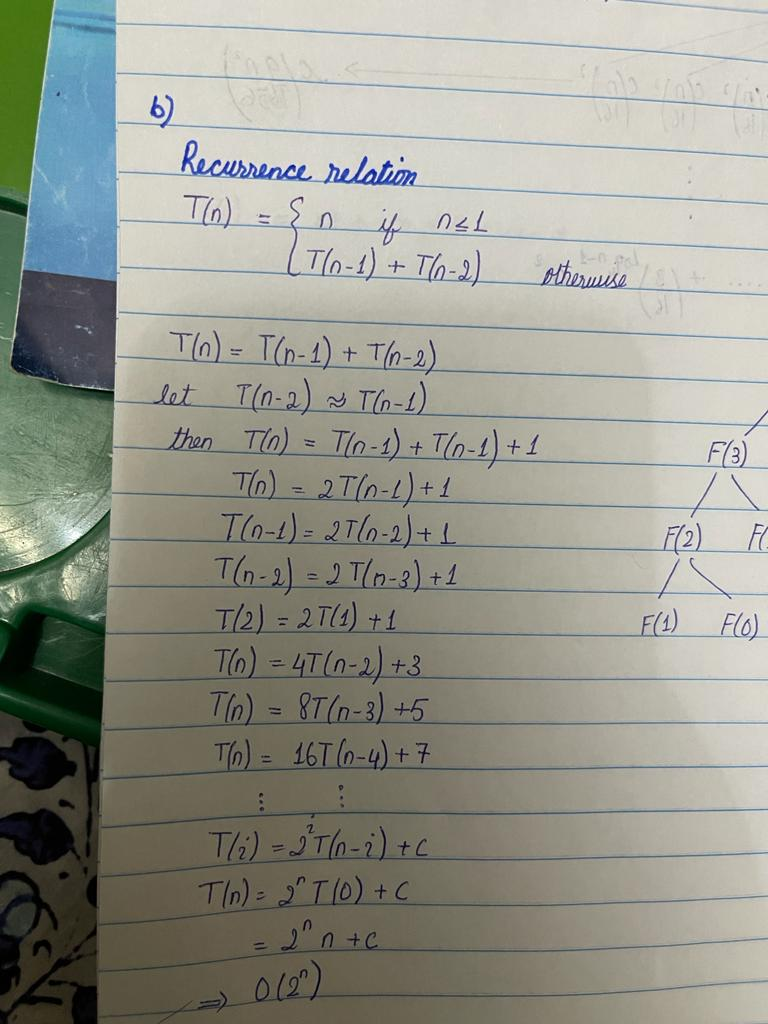 b)
Recurrence relation
T(n) = { n if n≤1
T(n-1) + T(n-2) otherwise
T(n) = T(n-1) + T(n-2)
let T(n-2) ≈ T(n-1)
then T(n) = T(n-1) + T(n-1) + 1
T(n) = 2T(n-1)+1
T(n-1) = 2T(n-2)+1
T(n-2) = 2T(n-3)+1
T(2) = 2T(1) +1
T(n) = 4T(n-2) +3
T(n) = 8T(n-3) +5
T(n) = 16T(n-4) + 7
⋮ ⋮
T(i) = 2^i T(n-i) + c
T(n) = 2^n T(0) + c
= 2^n n + c
⇒ O(2^n)
F(3)
F(2) F(
F(1) F(0)